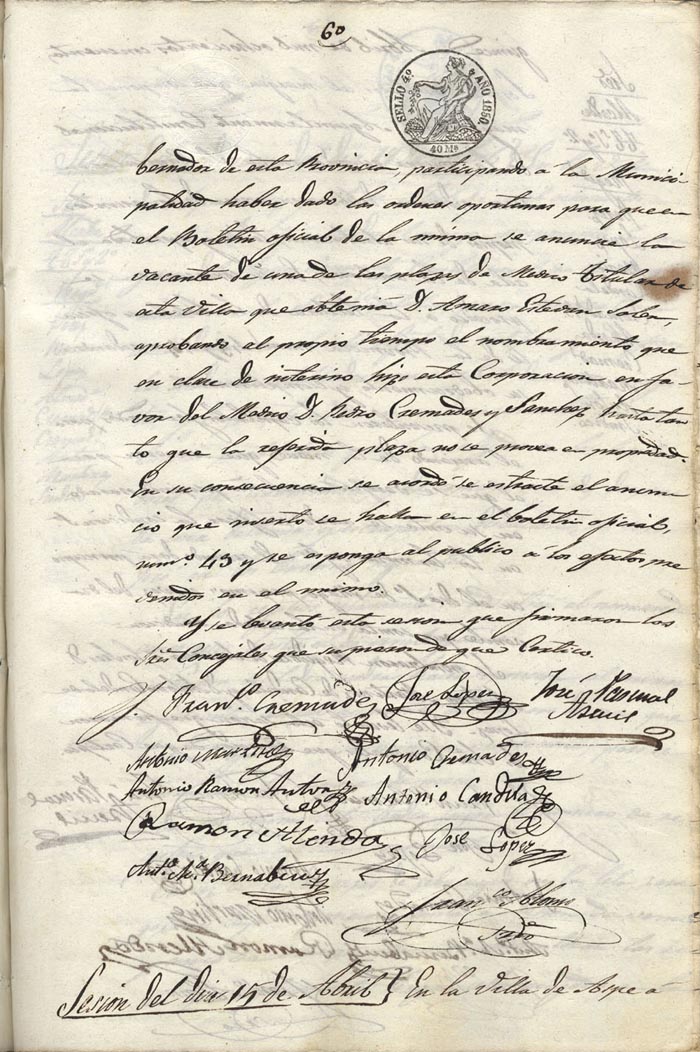 60
SELLO 4º AÑO 1850.
40 Ms
bernador de esta Provincia, participando á la Munici-
palidad haber dado las ordenes oportunas para que en
el Boletin oficial de la misma se anuncie la
vacante de una de las plazas de Medico Titular de
esta Villa que obtenia D. Amaro Estevan Soler,
aprobando al propio tiempo el nombramiento que
en clase de interino hizo esta Corporacion en fa-
vor del Medico D. Pedro Cremades y Sanchez, hasta tan
to que la referida plaza no se provea en propiedad.
En su consecuencia se acordó se estracte el anun-
cio que inserto se halla en el boletin oficial,
numº 43 y se esponga al publico á los efectos pre
venidos en el mismo.
Y se levantó esta sesion que firmaron los
Sres Concejales que supieron de que Certifico.
Franco Cremades José Lopez José Pascual
Antonio Martinez Antonio Cremades
Antonio Ramon Antonio Candela
Ramon Alenda Jose Lopez
Anto Ma Bernabeu
Franco Alonso
Srio
Sesion del dia 15 de Abril } En la Villa de Aspe á